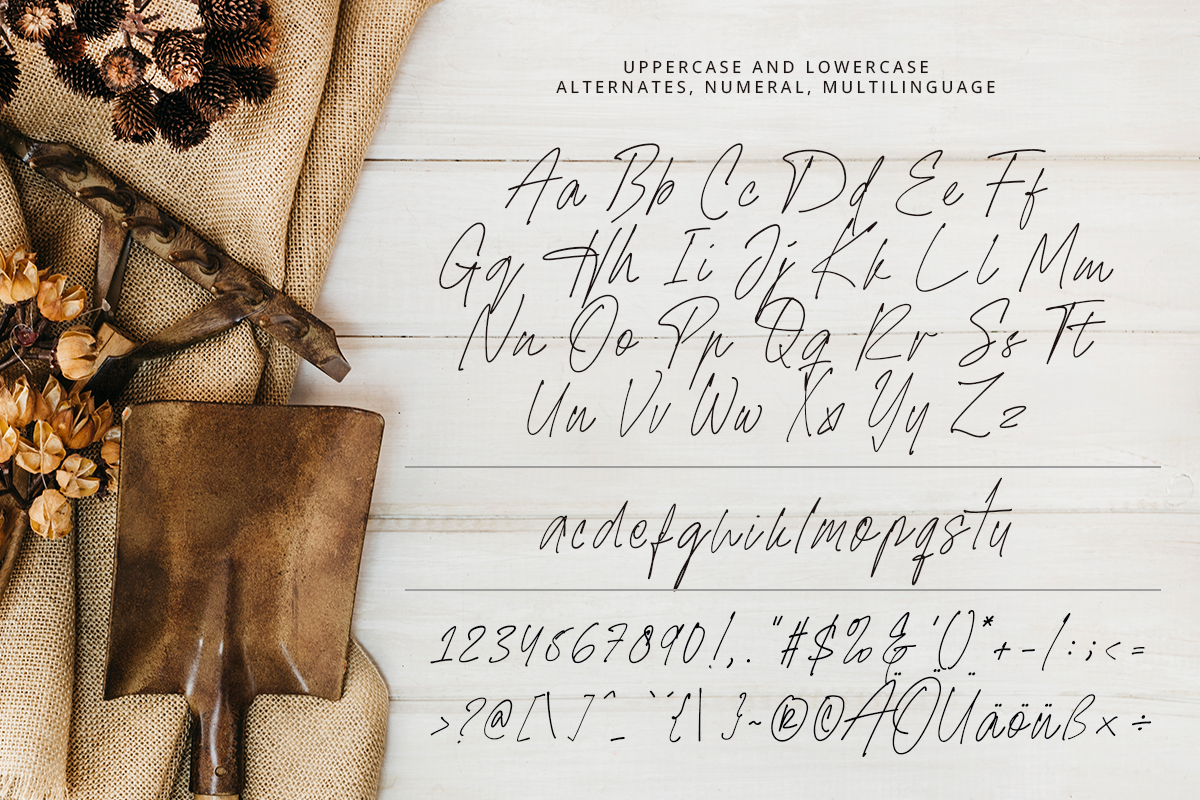 UPPERCASE AND LOWERCASE
ALTERNATES, NUMERAL, MULTILINGUAGE
Aa Bb Cc Dd Ee Ff
Gg Hh Ii Jj Kk Ll Mm
Nn Oo Pp Qq Rr Ss Tt
Uu Vv Ww Xx Yy Zz
acdefghiklmopqstu
1234567890!,. "#$%&'()*+-/:;<=
>?@[\]^_`´{|}~®©ÄÖÜäöüß×÷